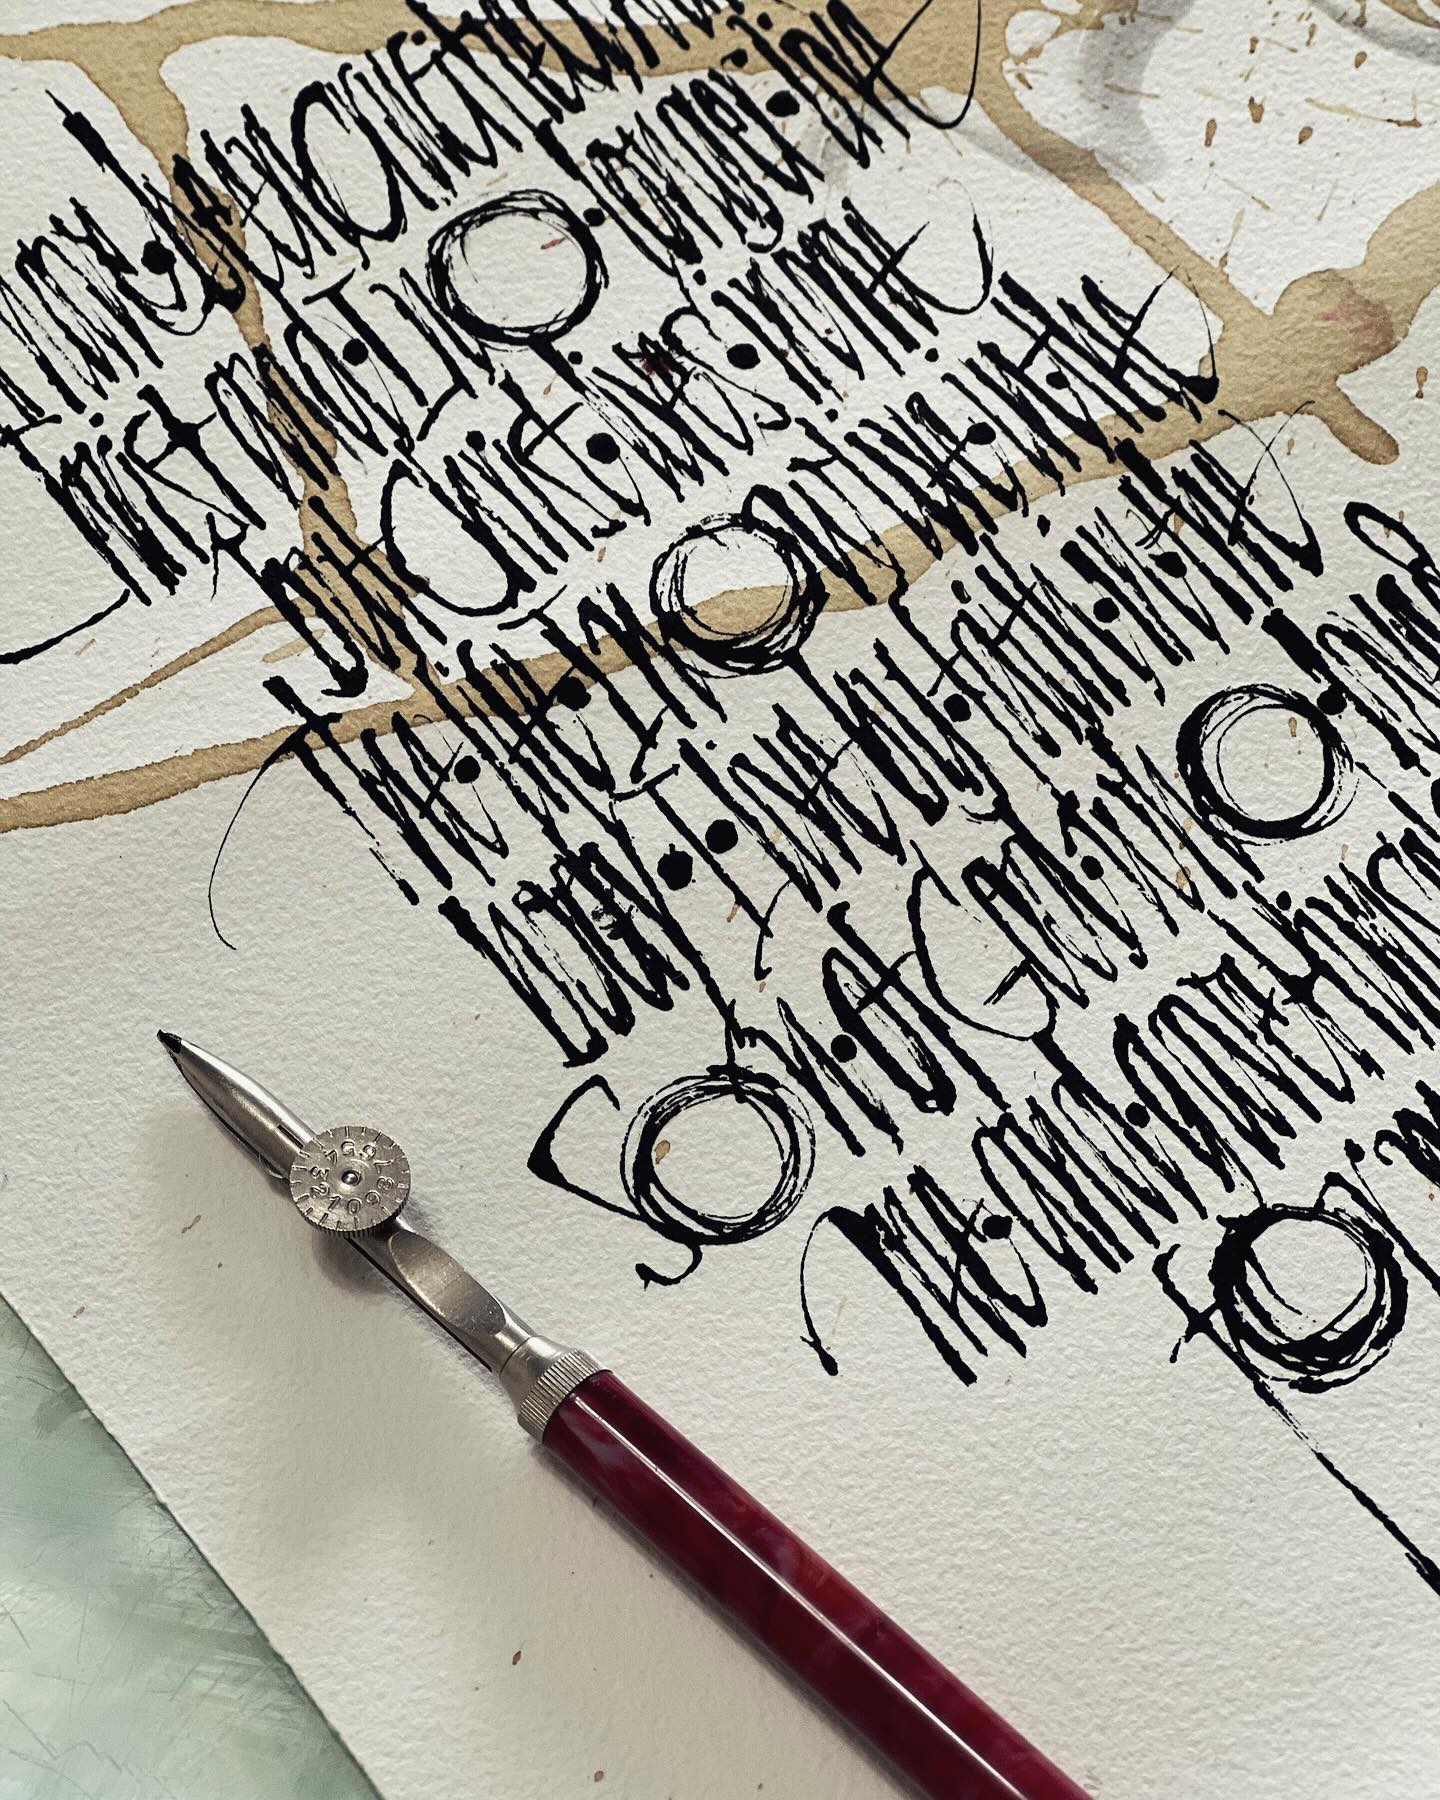 have been crucified
Christ and I no longer live
but Christ lives in me
The life I now live in the
body I live by faith in the
Son of God who loved
me and gave himself
for